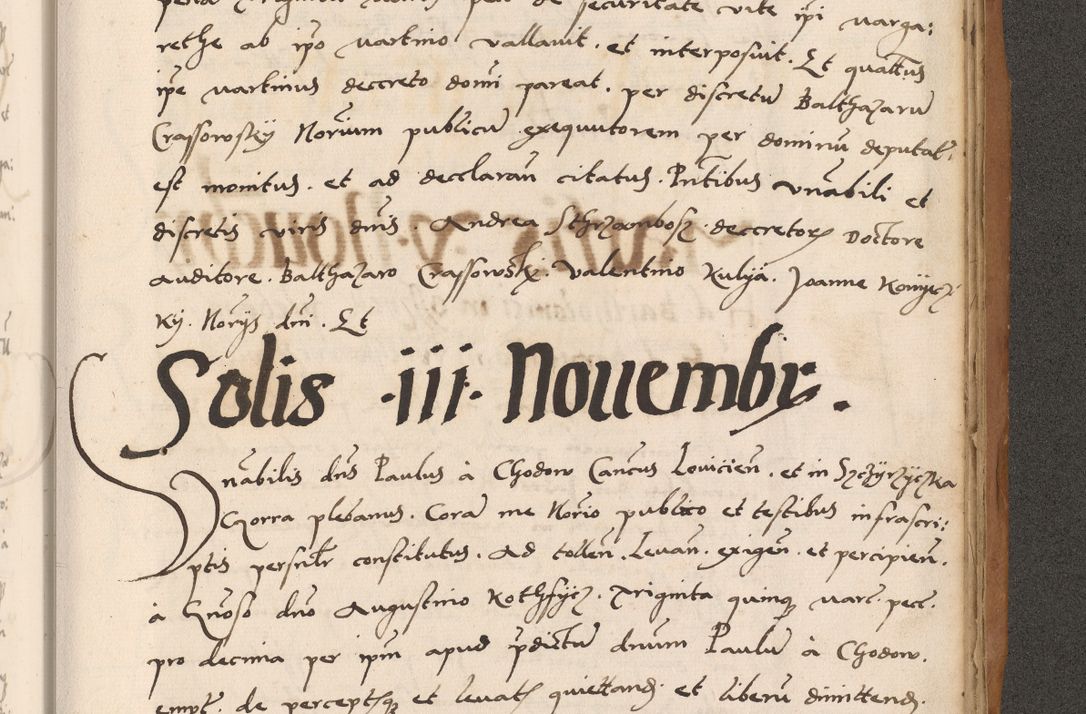 rethe ab ip̄o martino vallauit. et interposuit. Et quatt̄us
ip̄e martinus deccreto domi pareat. per discretū Balthazarū
Crassowskÿ Noriū publicū exequutorem per dominū deputat.
est monitus. et ad decclaran̄ citatus. Pn̄tibus vn̄abili et
discretis viris dn̄is. Andrea Sthrzambosz deccretorꝫ Doctore
Auditore. Balthazaro Crassowsky. Valentino Kulÿa. Joanne Koniecz:
ky. Norÿs dn̄i. Et
Solis .iii. Nouembr.
Vn̄abilis dn̄s Paulus à Chodow Can̄cus Lowicien̄. et in Szczÿrzÿczka
Gorra plebanus. Corā me No̅rio publico et testibus infrascri:
ptis persn̄lr constitutus. Ad tollen̄. Leuan̄. exigen̄. et percipien̄.
à Gn̄oso dn̄o Augustino Kothffÿcz. Triginta quinqꝫ marc. pecc.
pro decima per ip̄m apud p̄dictū dn̄um Paulū à Chodow.
empt. de perceptisqꝫ et leuatis quiettandꝫ. et liberū dimittendꝫ.